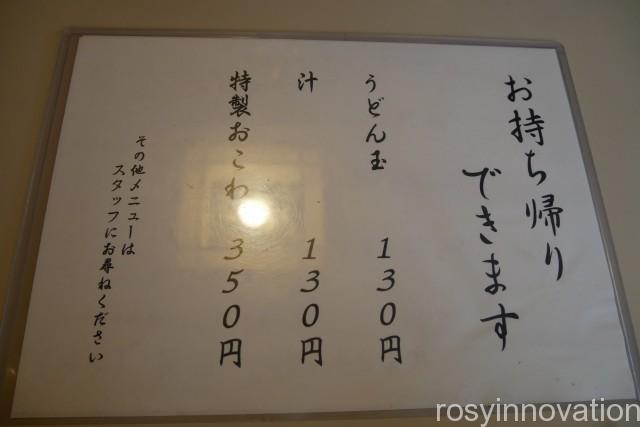 お持ち帰り
できます
うどん玉　130円
汁　130円
特製おこわ　350円
その他メニューは
スタッフにお尋ねください
rosyinnovation